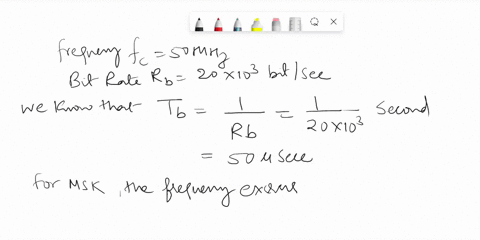 frequency fc = 50 MHz
Bit Rate Rb = 20 × 10³ bit/sec
we know that Tb = 1/Rb = 1/20×10³ second
= 50 μ sec
for MSK, the frequency